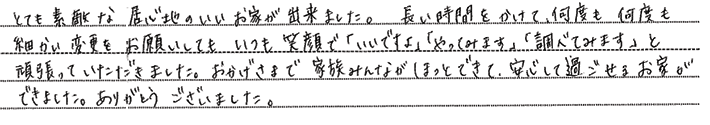 とても素敵な居心地のいいお家が出来ました。長い時間をかけて、何度も何度も
細かい変更をお願いしてもいつも笑顔で「いいですよ」「やってみます」「調べてみます」と
頑張っていただきました。おかげさまで家族みんながほっとできて、安心して過ごせるお家が
できました。ありがとうございました。